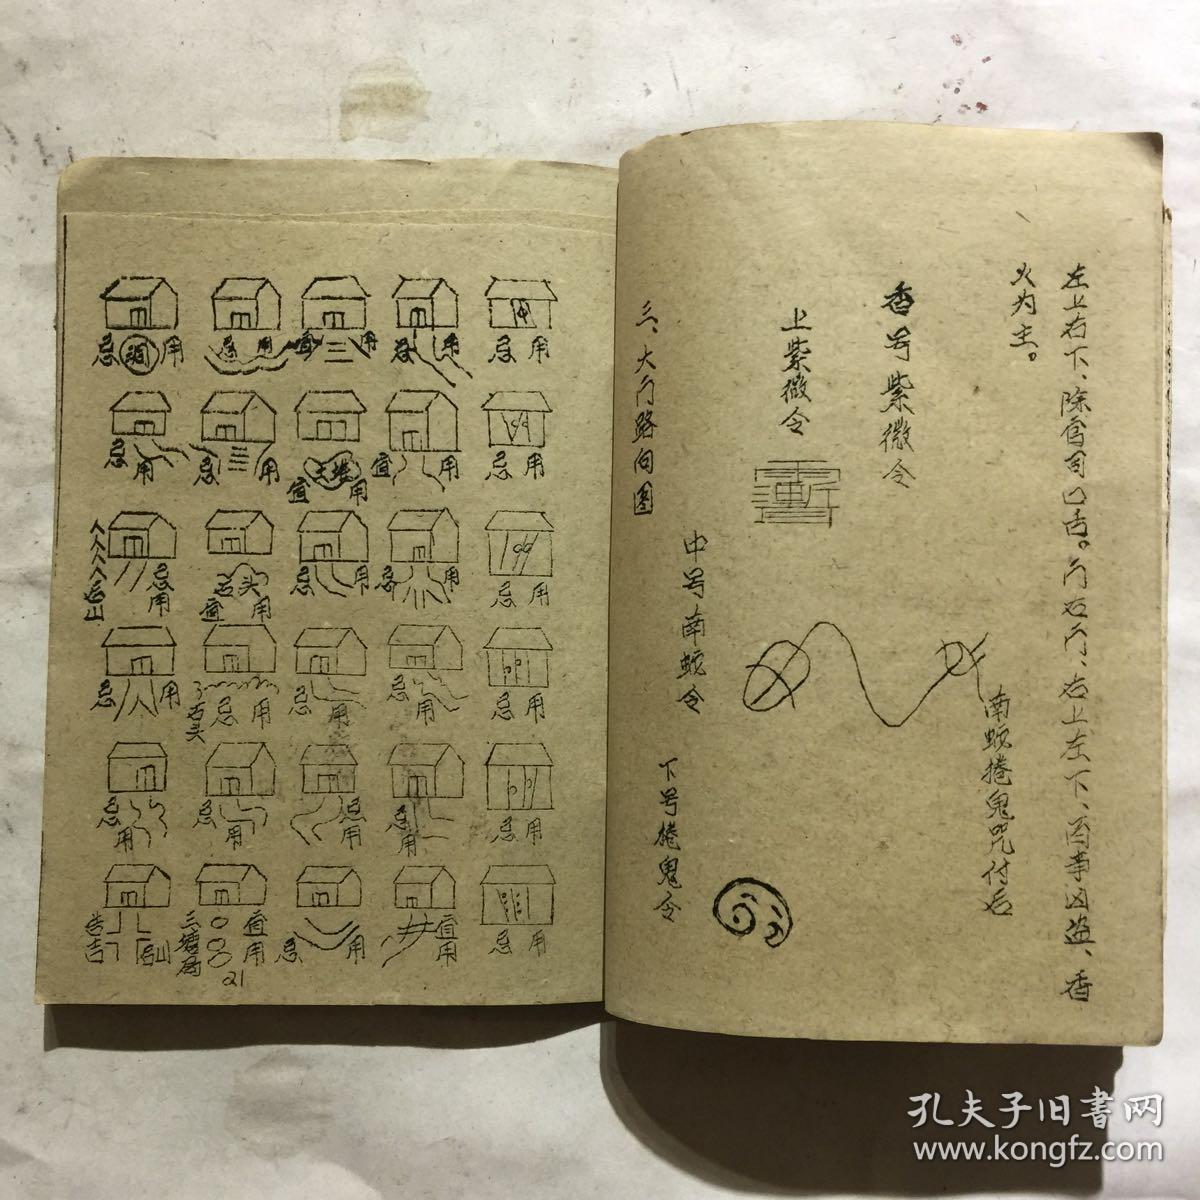 左上右下、除官司口舌。门右门、右上左下、百事凶盗、香
火为主。
香号紫微令
上紫微令
南蛇捲鬼咒付后
中号南蛇令
下号捲鬼令
三、大门路向图
忌 用
忌 用
宜 三 用
忌 用
忌 用
忌 用
忌 用
宜 用
宜
忌 用
后山
忌用
石头
宜 用
忌 用
忌 用
忌 用
忌 用
石头
忌 用
忌 用
忌 用
忌 用
忌 用
忌 用
忌 用
忌 用
忌 用
吉
后山
三塘局
宜用
忌 用
宜用
忌 用
21
孔夫子旧书网
www.kongfz.com